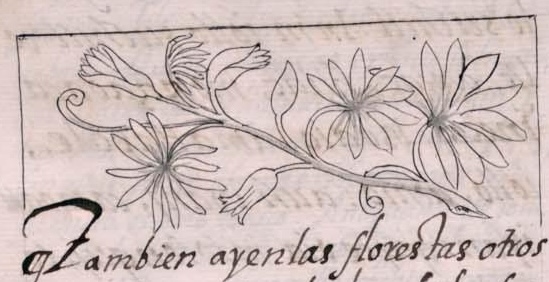 ¶ Tambien ay en las florestas otros